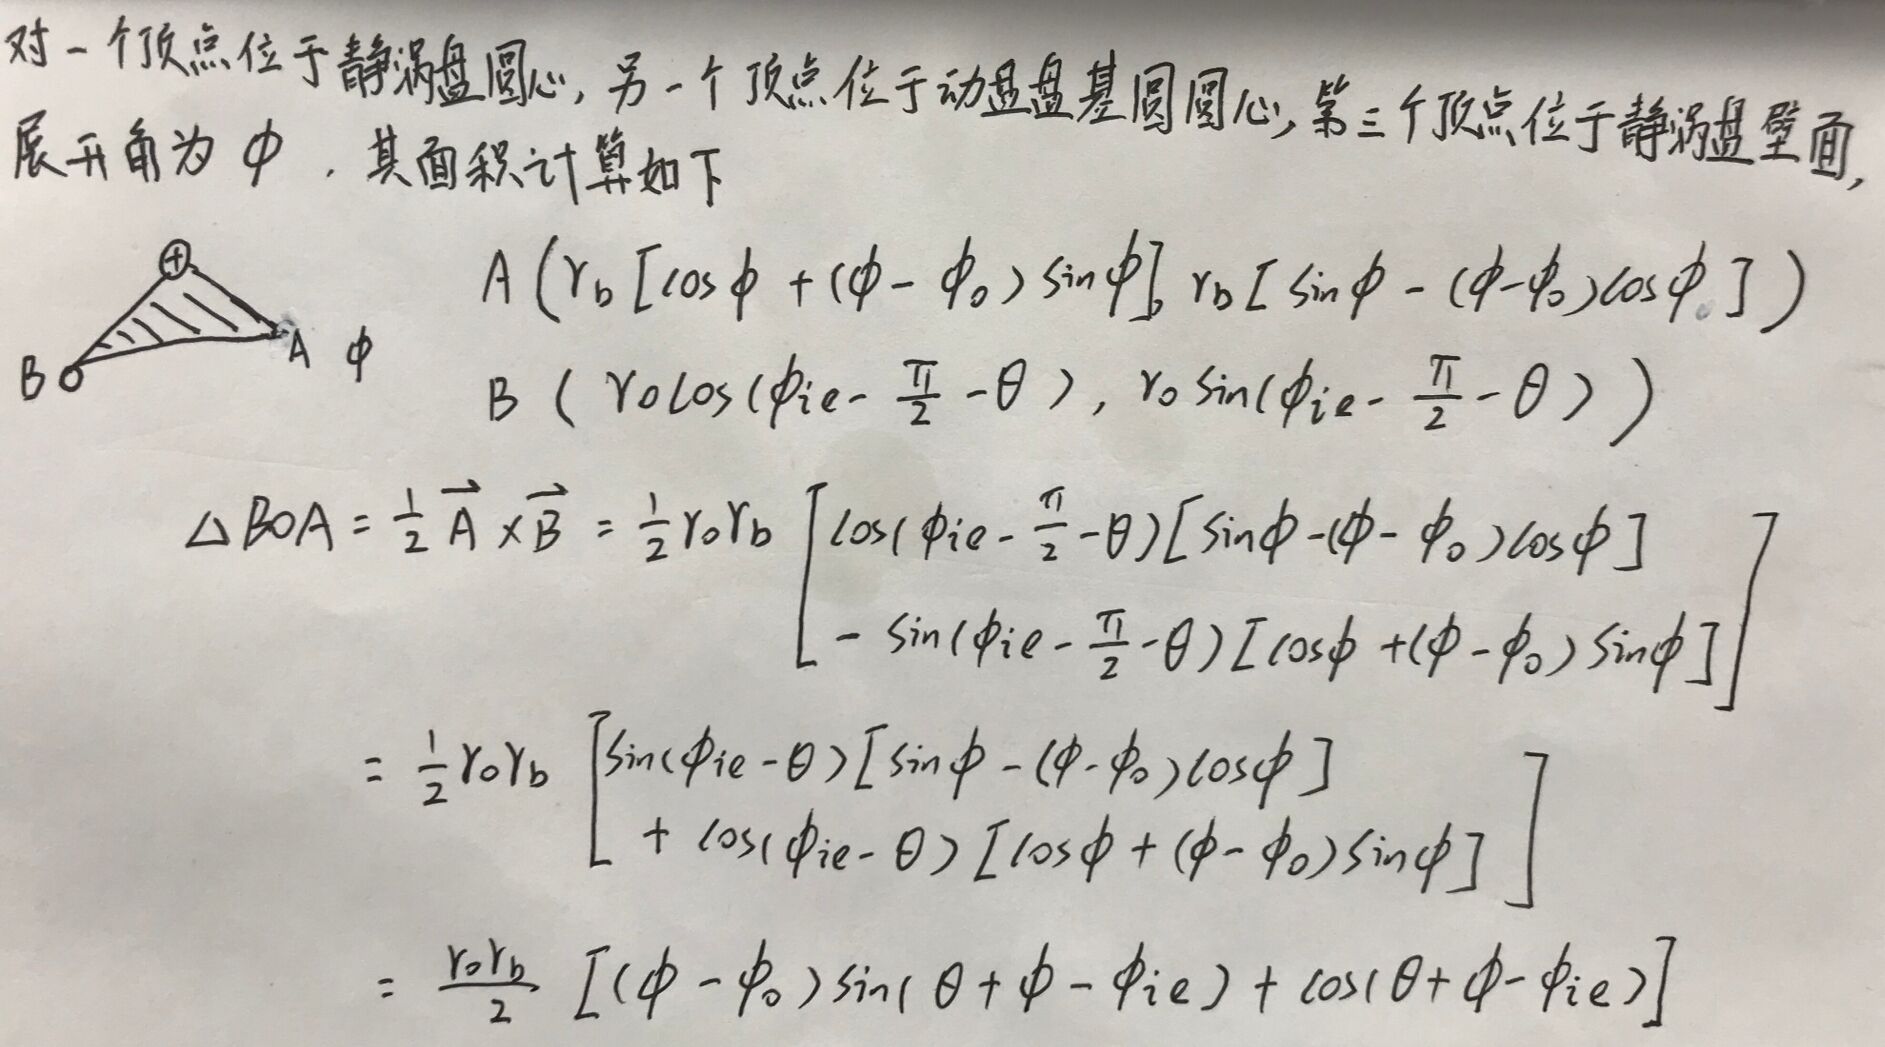 对一个顶点位于静涡盘圆心,另一个顶点位于动盘盘基圆圆心,第三个顶点位于静涡盘壁面,
展开角为 ϕ ,其面积计算如下
A (r_b[cosϕ + (ϕ - ϕ_0) sinϕ], r_b[sinϕ - (ϕ-ϕ_0)cosϕ])
B A ϕ
B ( r_o cos(ϕ_ie - π/2 - θ), r_o sin(ϕ_ie - π/2 - θ))
△BOA = 1/2 A⃗ × B⃗ = 1/2 r_o r_b [cos(ϕ_ie - π/2 - θ)[sinϕ - (ϕ - ϕ_0)cosϕ]
- sin(ϕ_ie - π/2 - θ)[cosϕ + (ϕ - ϕ_0) sinϕ]]
= 1/2 r_o r_b [sin(ϕ_ie - θ)[sinϕ - (ϕ-ϕ_0)cosϕ]
+ cos(ϕ_ie - θ)[cosϕ + (ϕ - ϕ_0) sinϕ]]
= r_o r_b/2 [(ϕ - ϕ_0) sin(θ + ϕ - ϕ_ie) + cos(θ + ϕ - ϕ_ie)]